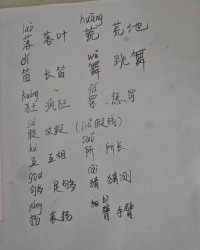 luò huāng
落 落叶 荒 荒地
dí wǔ
笛 长笛 舞 跳舞
kuáng
狂 疯狂 罚 惩罚
假 放假
hù suǒ
互 互相 所 所长
gòu cāi
够 足够 猜 猜测
yáng
扬 表扬 臂 手臂